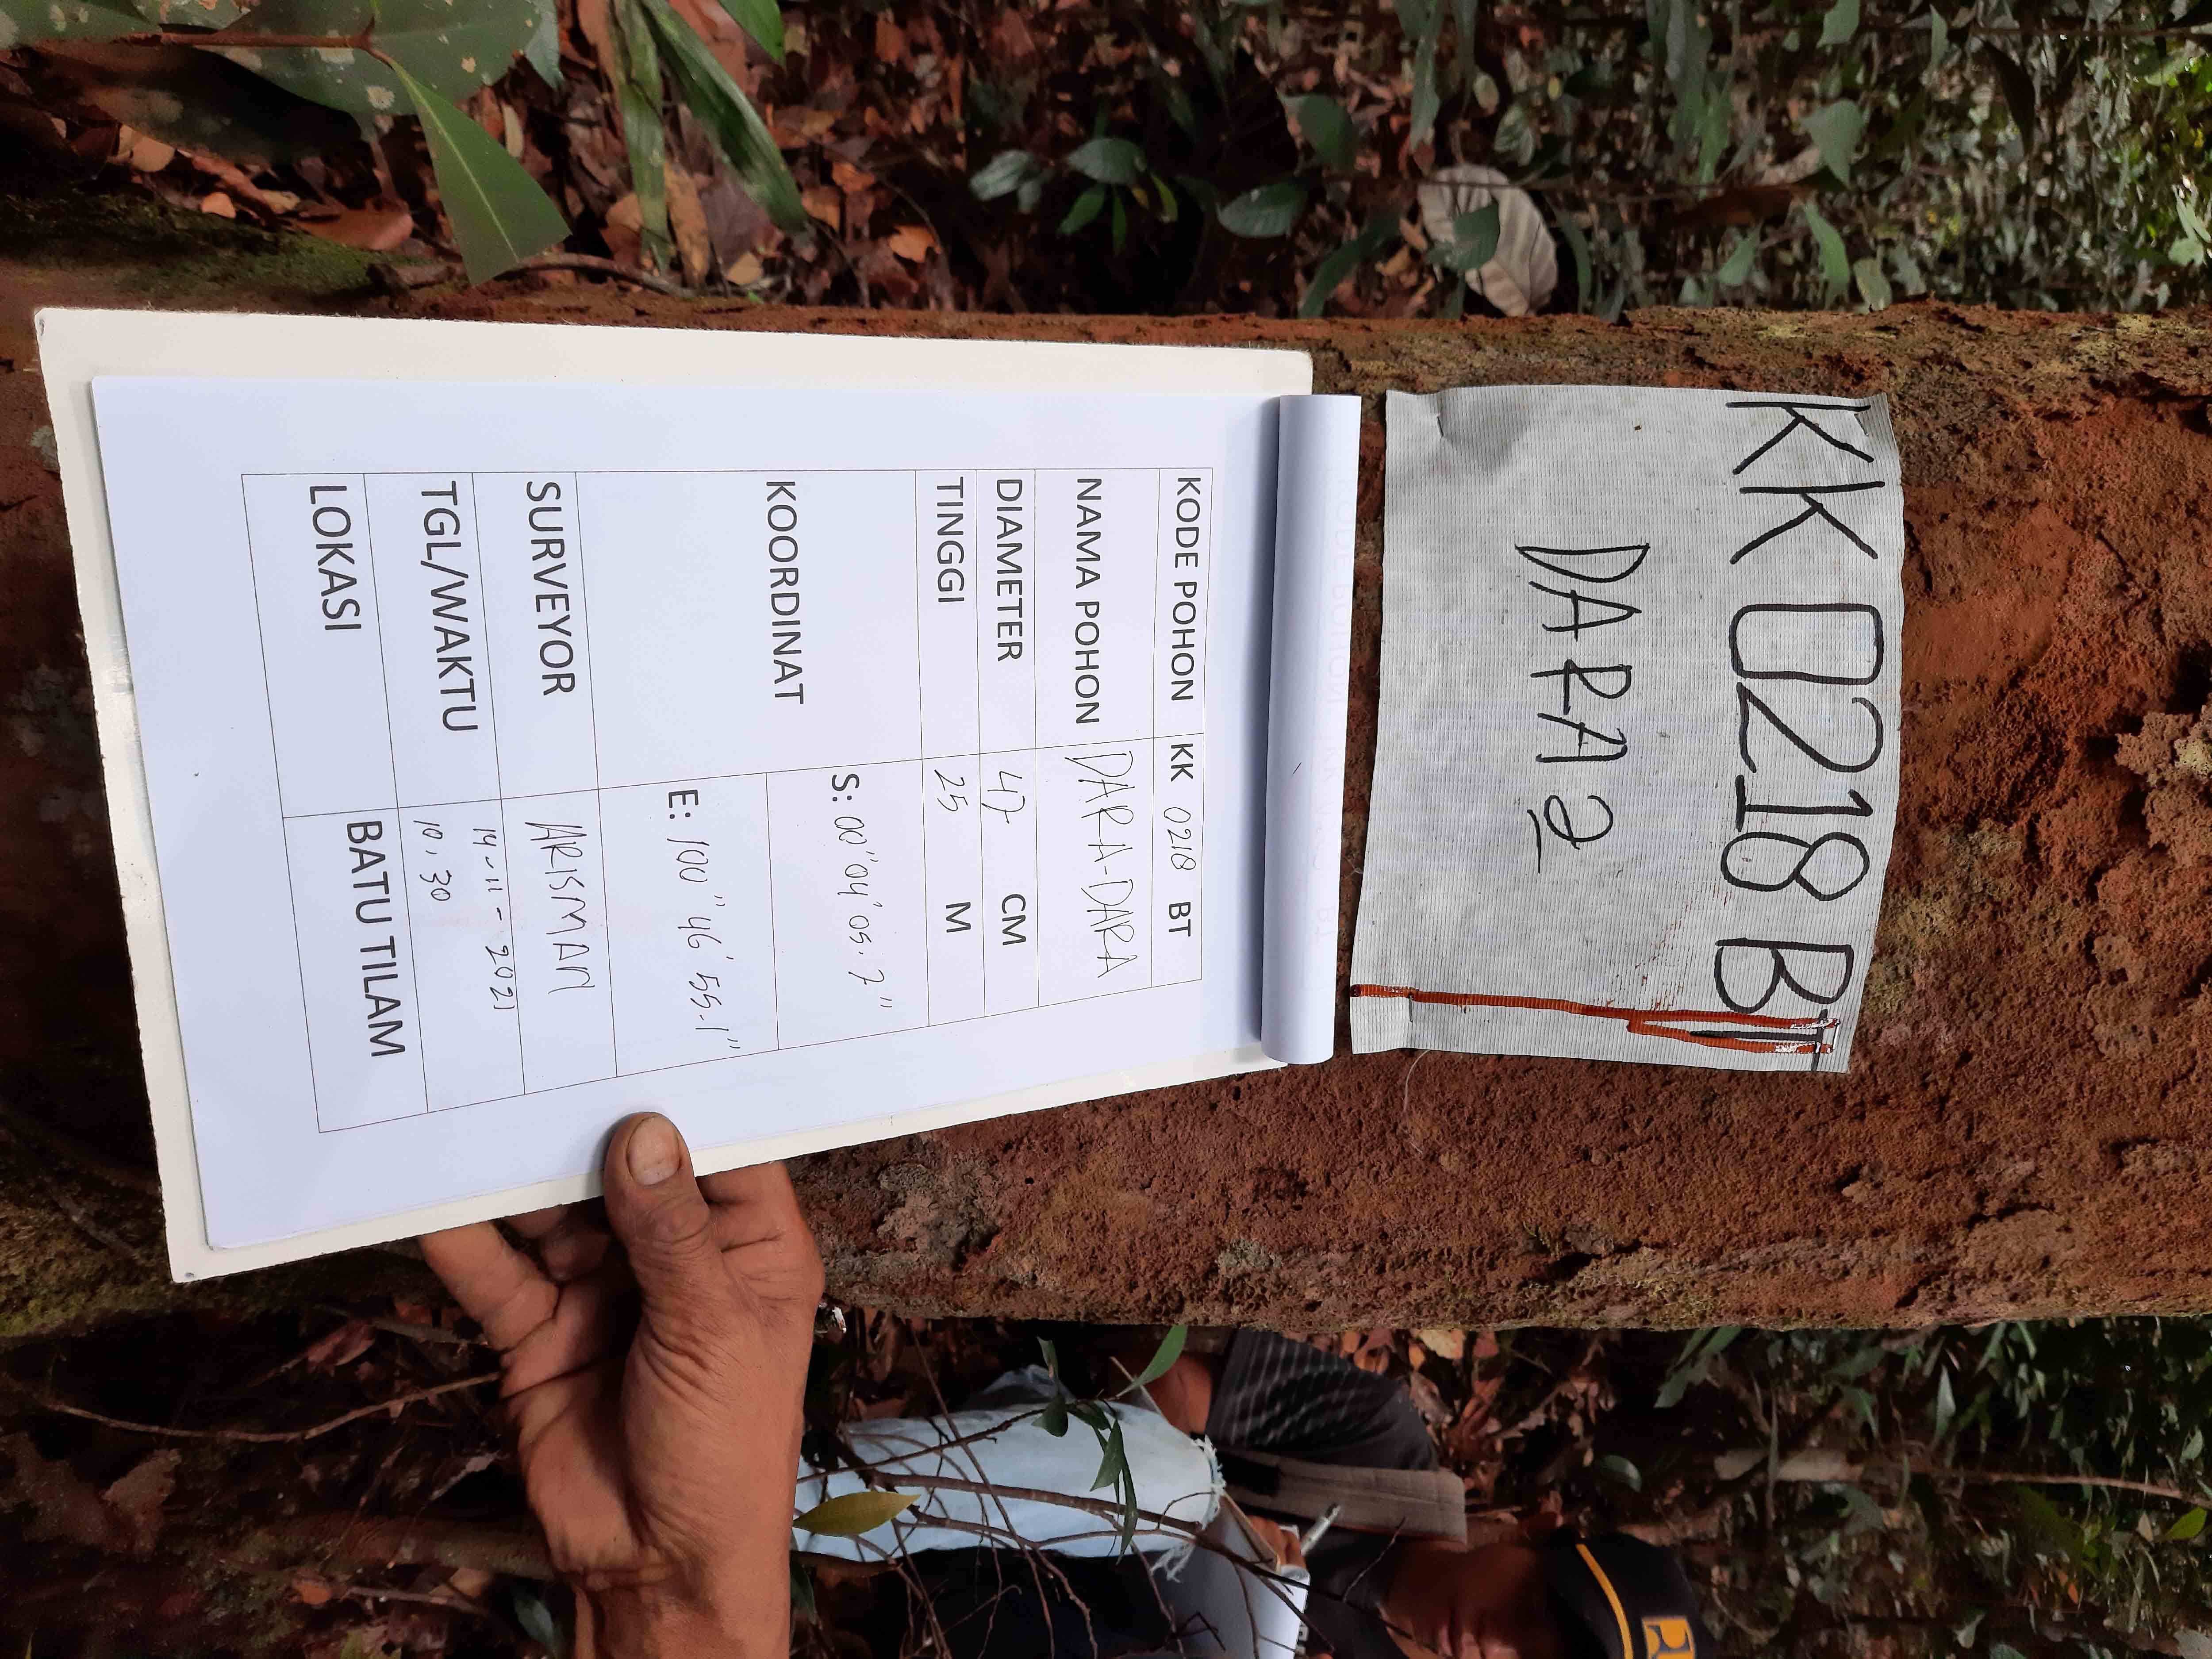 KK 0218 BT
DARA 2
KODE POHON KK 0218 BT
NAMA POHON DARA-DARA
DIAMETER 47 CM
TINGGI 25 M
KOORDINAT S: 00°04' 05.7"
E: 100° 46' 55.1"
SURVEYOR ARISMAN
TGL/WAKTU 14-11-2021
10.30
LOKASI BATU TILAM